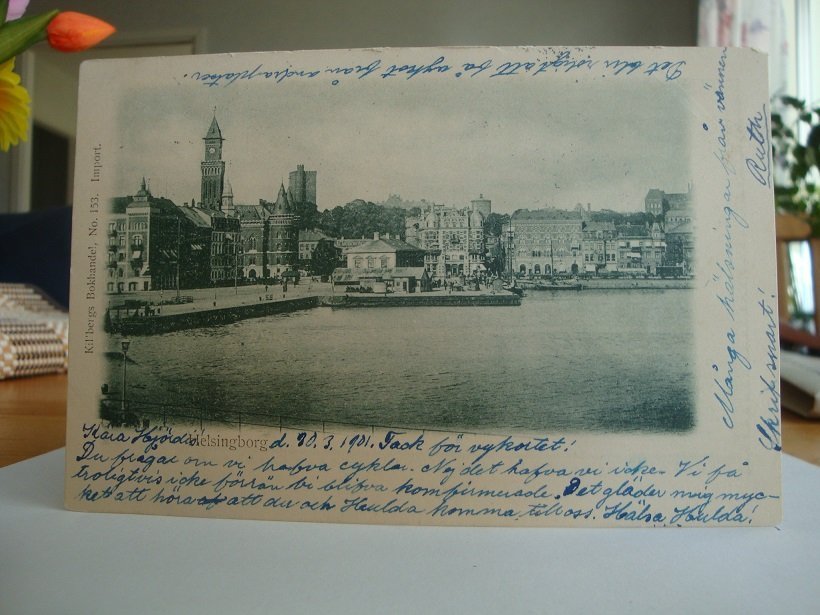 Det blir roligt att få vykort från andra platser.
Kill'bergs Bokhandel, No. 153. Import.
Helsingborg
Kära Hjördis! d. 30.3.1901. Tack för vykortet!
Du frågar om vi hafva cyklar. Nej det hafva vi icke. Vi få
troligtvis icke förrän vi blifva komfirmerade. Det gläder mig myc-
ket att höra att du och Hulda komma till oss. Hälsa Hulda!
Många hälsningar från vännen
Ruth
Skrif snart!